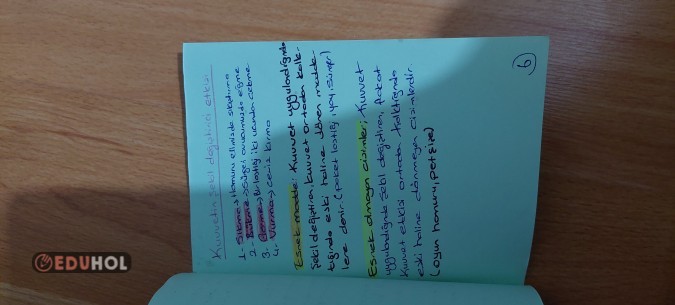 Kuvvetin şekil değiştirici etkisi
1- Sıkma → Hamuru elimizde sıkıştırma
2. → Süngeri avucumuzda eğme
3- Germe → Bir lastiği iki ucundan çekme
4- Vurma → Cevizi kırma
Esnek madde: Kuvvet uygulandığında
şekil değiştiren, kuvvet ortadan kalk-
tığında eski haline dönen madde-
lere denir. (paket lastiği, yay, sünger)
Esnek olmayan cisimler; Kuvvet
uygulandığında şekil değiştiren, fakat
kuvvet etkisi ortadan kalktığında
eski haline dönmeyen cisimlerdir.
(oyun hamuru, pet şişe)
6
EDUHOL